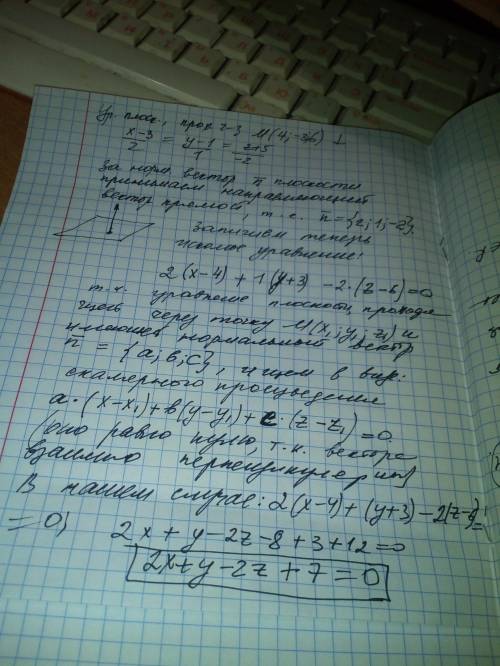 Ур. плоск., прох. ч-з М(4;-3;6) ⊥
(x-3)/2 = (y-1)/1 = (z+5)/-2
За норм. вектор n̄ плоскости
принимаем направляющий
вектор прямой, т.е. n̄={2;1;-2}.
Запишем теперь
искомое уравнение:
2(x-4) + 1(y+3) -2·(z-6)=0
т.к. уравнение плоскости, проходя
щей через точку М(x₁;y₁;z₁) и
имеющей нормальный вектор
n̄ = {a;b;c}, ищем в виде:
скалярного произведения
a·(x-x₁)+b(y-y₁)+c·(z-z₁)=0.
(оно равно нулю, т.к. вектора
взаимно перпендикулярны)
В нашем случае: 2(x-4)+(y+3)-2(z-6)=
=0;
2x+y-2z-8+3+12=0
2x+y-2z+7=0